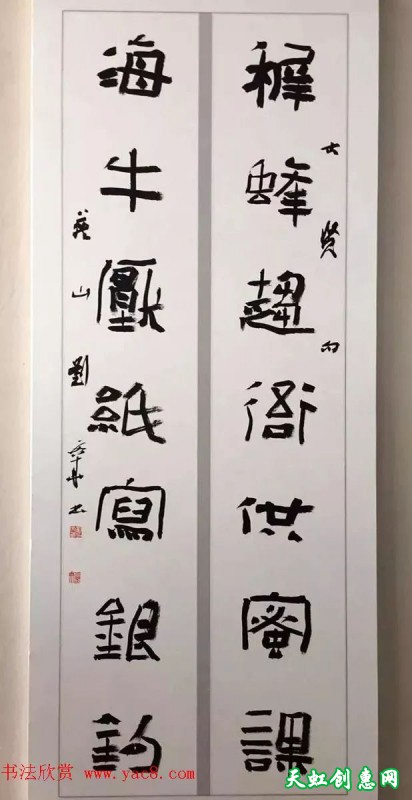 稺蜂趨衙供蜜課
海牛壓紙寫銀鉤
山劉
书法欣赏 www.yac8.com
天虹创惠网